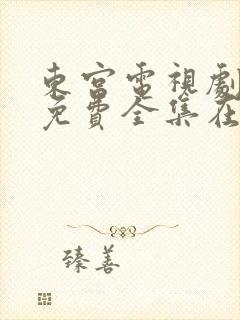 東宮電視劇
免費全集在
臻善